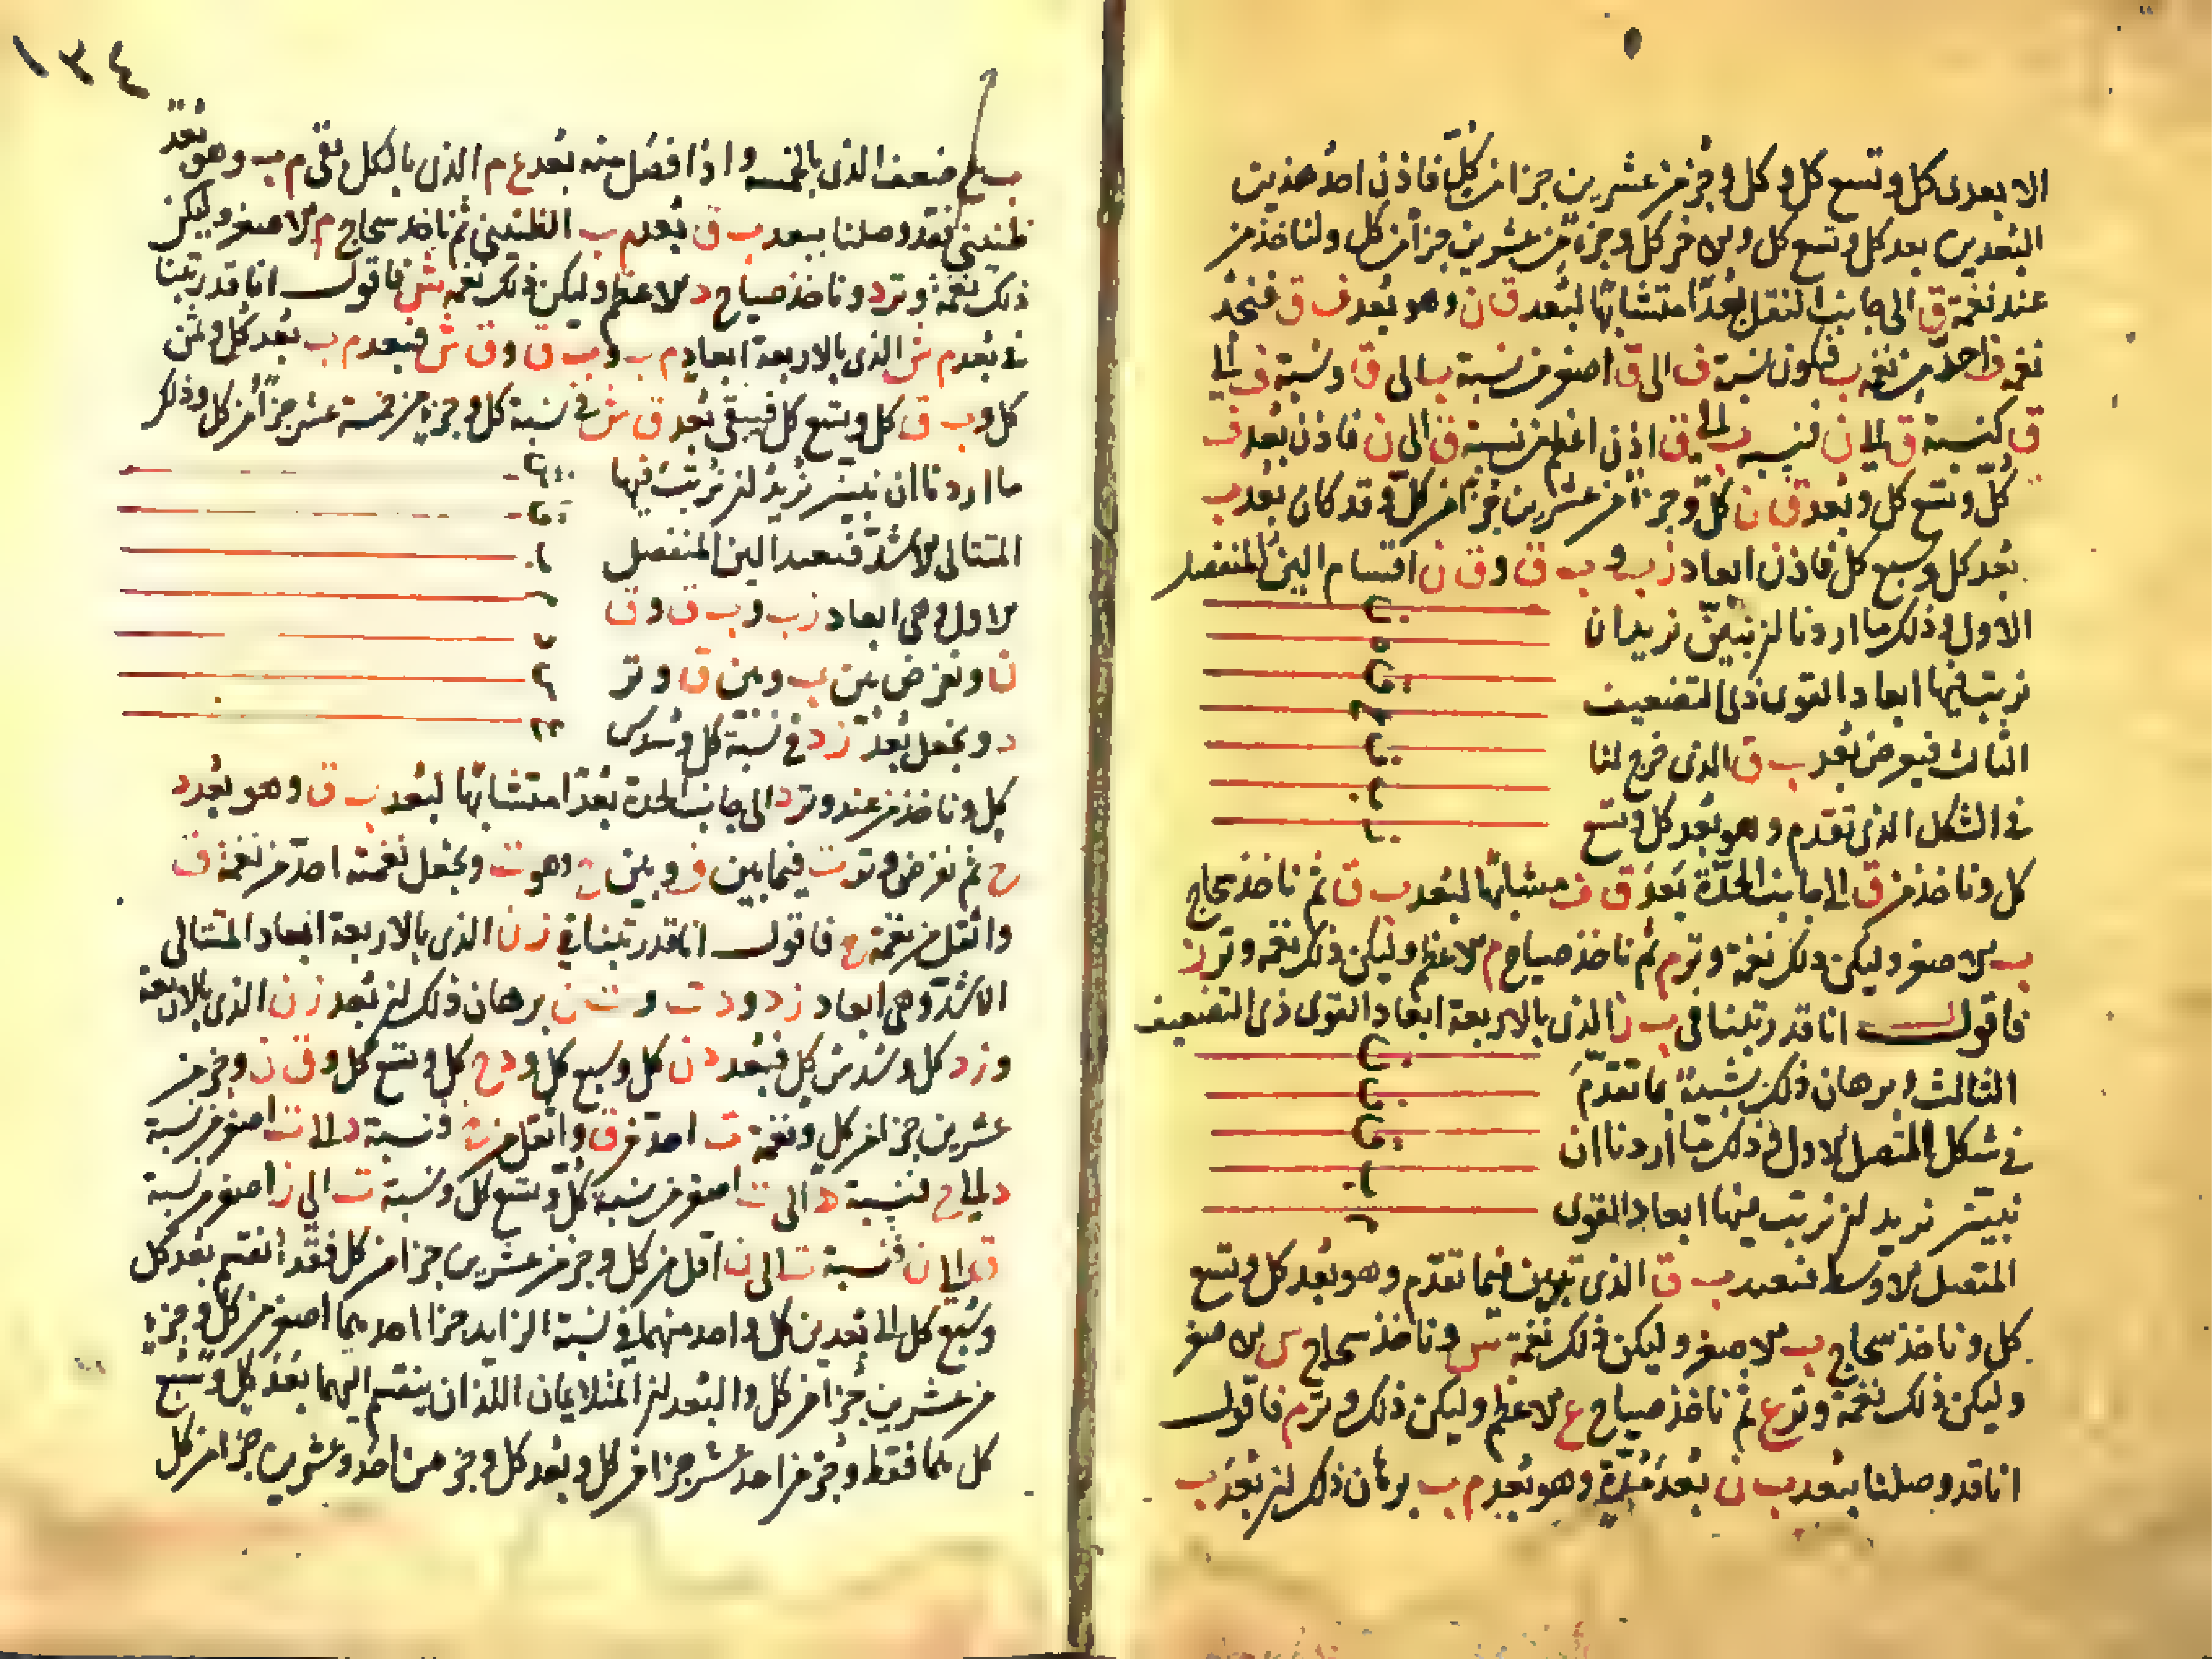 الا بعدى كل وتسع كل وكل وجز من عشرين جزا من كل فاذن احد هذين
البعدين بعد كل وتسع كل والاخر كل وجزء من عشرين جزأ من كل ولناخذ من
عند نغمة ق الى جانب الثقل بعدًا متشابها لبعد ق ن وهو بعد ف ق فنجد
نغمة ف احد من نغمة ب فتكون نسبة ف الى ق اصغر من نسبة ب الى ق ونسبة ف الى
ق كنسبة ق الى ن فنسبة ب الى ق اذن اعظم من نسبة ق الى ن فاذن بعد ف
كل وتسع كل وبعد ق ن كل وجزأ من عشرين جزأ من كل وقد كان بعد ب
بعد كل وسبع كل فاذن ابعاد ز ب و ب ق و ق ن اقسام اللين المنفصل
الاول وذلك ما اردنا ان نبين نريد ان
نرتب فيها ابعاد القوى ذى التضعيف
الثالث فيعرض بعد ب ق الذى خرج لنا
فى الشكل الذى تقدم وهو بعد كل وتسع
كل وناخذ من ق الى جانب الحدة بعد ق ف مشابها لبعد ب ق ثم ناخذ سجاح
ب الاصغر وليكن ذلك نغمة وتر م ثم ناخذ صياح م الاعظم وليكن ذلك نغمة وتر ز
فاقول انا قد رتبنا فى ب ز الذى بالاربعة ابعاد القوى ذى التضعيف
الثالث وبرهان ذلك شبيه بما تقدم
فى شكل المتصل الاول وذلك ما اردنا ان
نبين نريد ان نرتب فيها ابعاد القوى
المتصل الاوسط فنعيد ب ق الذى تبين فيما تقدم وهو بعد كل وتسع
كل وناخذ سجاح ب الاصغر وليكن ذلك نغمة س وناخذ سجاح س الاصغر
وليكن ذلك نغمة وتر ع ثم ناخذ صياح ع الاعظم وليكن ذلك وتر م فاقول
انا قد وصلنا ببعد ب ن بعد مدة وهو بعد م ب برهان ذلك ان بعد ب
١٣٤
ب ع ضعف الذى بالخمسه واذا فصل منه بعد ع م الذى بالكل بقى م ب وهو بعد
طنينى فقد وصلنا ببعد ب ق بعد م ب الطنينى ثم ناخذ سجاح م الاصغر وليكن
ذلك نغمة وتر د وناخذ صياح د الاعظم وليكن ذلك نغمة ش فاقول انا قد رتبنا
فى بعد م ش الذى بالاربعة ابعاد م ب و ب ق و ق ش فبعد م ب بعد كل وثمن
كل و ب ق كل وتسع كل فيبقى بعد ق ش فى نسبة كل وجزء من خمسة عشر جزأ من كل وذلك
ما اردنا ان نبين نريد ان نرتب فيها
المتتالى الاشد فنعيد اللين المنفصل
الاول وهى ابعاد ز ب و ب ق و ق
ن ونفرض بين ب وبين ق وتر
د ونجعل بعد ز د فى نسبة كل وسدس
كل وناخذ من عند وتر د الى جانب الحدة بعدا متشابها لبعد ب ق وهو بعد د
ح ثم نفرض وتر ت فيما بين ق وبين ح وهو ت ونجعل نغمته احد من نغمة ق
واثقل من نغمة ح فاقول انا قد رتبنا فى ز ن الذى بالاربعة ابعاد المتتالى
الاشد وهى ابعاد ز د و د ت و ت ن برهان ذلك ان بعد ز ن الذى بالاربعة
و ز د كل وسدس كل فبعد د ن كل وسبع كل و د ح كل وتسع كل و ق ن وجز من
عشرين جزا من كل ونغمة ت احد من ق واثقل من ح فنسبة د الى ت اصغر من نسبة
د الى ح فنسبة د الى ت اصغر من نسبة كل وتسع كل ونسبة ت الى ن اصغر من نسبة
ق الى ن فنسبة ت الى ن اقل من كل وجز من عشرين جزا من كل فقد انقسم بعد كل
وسبع كل الى بعدين كل واحد منهما فى نسبة الزايد جزا احديهما اصغر من كل وجزء
من عشرين جزأ من كل والبعد ان المتلايمان اللذان ينقسم اليهما بعد كل وسبع
كل هما فقط وجز من احد عشر جزا من كل وبعد كل وجز من احد وعشرين جزا من كل